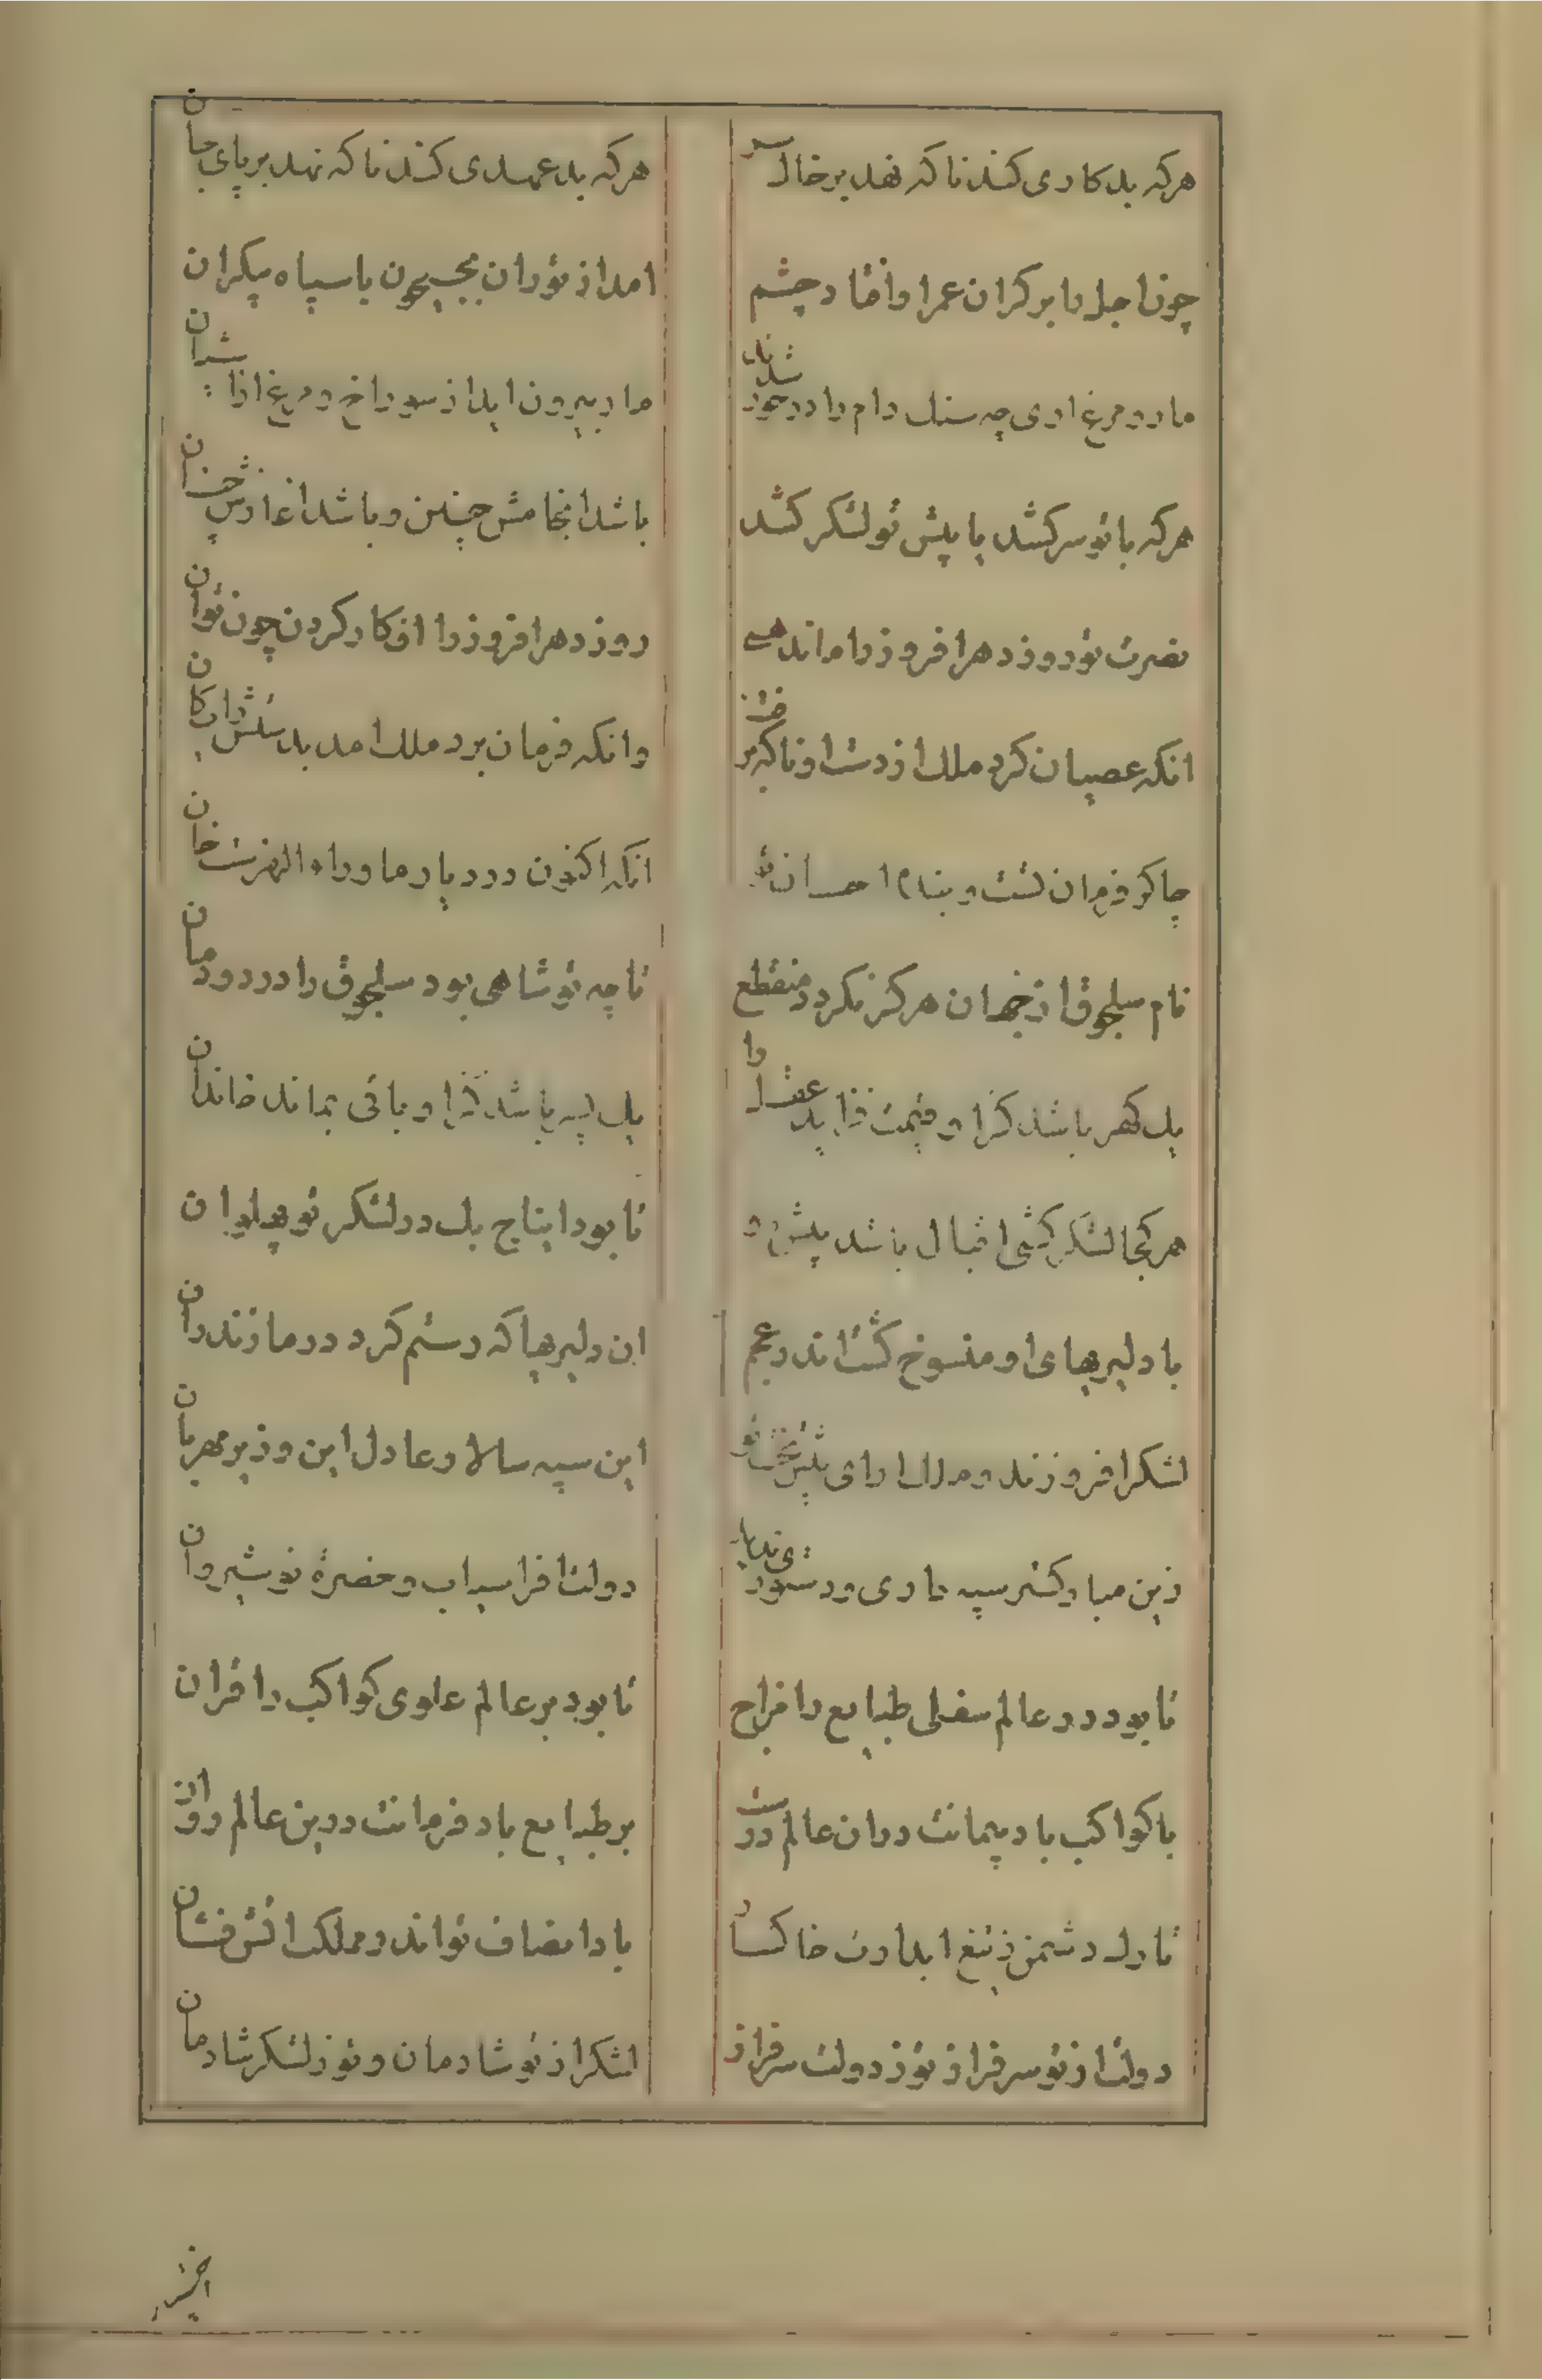 هرکه بد کاری کند ناکه نهد بر خاک سر
هرکه بد عهدی کند ناکه نهد بر پای جان
چون اجل را بر کران عمر او افتاد چشم
امد از توران بجیحون با سپاه بیکران
مار و مرغ اری چه سنک و دام را در خور شدند
مار بیرون اید از سوراخ و مرغ از اشیان
هرکه با تو سر کشد یا پیش تو لشکر کشد
باشد انجامش چنین و باشد اغازش چنان
نصرت تو روز دهر افروز را ماند همی
روز دهر افروز را انکار کردن چون توان
انکه عصیان کرد ملک از دست او ناکه برفت
وانکه فرمان برد ملک امد بدستش رایکان
چاکر فرمان تست و بنده احسان تو
انکه اکنون در دیار ماوراء النهرست خان
نام سلجوق از جهان هرکز نکردد منقطع
تا چه تو شاهی بود سلجوق را در دودمان
یک کهر باشد کزاو قیمت فزاید عقد را
یک پسر باشد کزاو باقی بماند خاندان
هر کجا لشکر کشی اقبال باشد پیش رو
تا بود ایناج بک در لشکر تو پهلوان
با دلیریهای او منسوخ کشت اندر عجم
ان دلیریها که رستم کرد در مازندران
لشکر افروزند و ملک ارای پیش تخت تو
این سپه سالار عادل این وزیر مهربان
زین مبارکتر سپه داری و دستوری ندید
دولت افراسیاب و حضرة نوشیروان
تا بود در عالم سفلی طبایع را مزاج
تا بود بر عالم علوی کواکب را قران
با کواکب باد پیمانت در ان عالم درست
بر طبایع باد فرمانت در این عالم روان
تا دل دشمن ز تیغ ابدارت خاکسار
باد انصاف تو اندر مملکت اتش فشان
دولت از تو سرفراز تو ز دولت سرفراز
لشکر از تو شادمان و تو ز لشکر شادمان